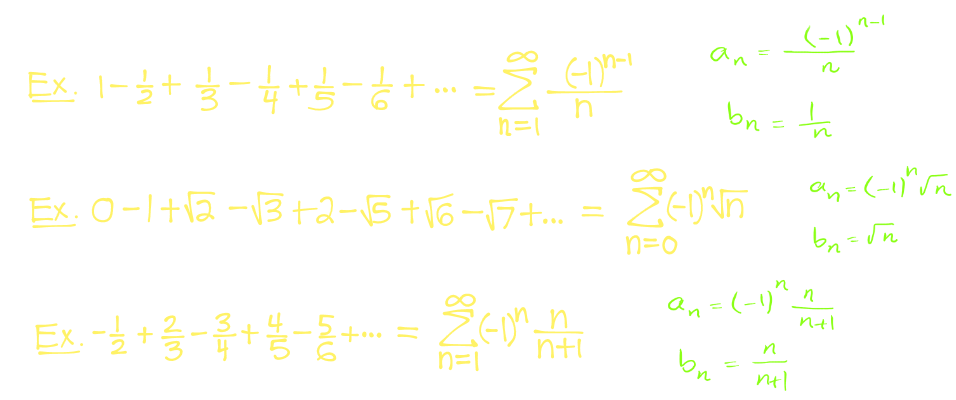 Ex. 1 - 1/2 + 1/3 - 1/4 + 1/5 - 1/6 + ... = ∑_{n=1}^{∞} (-1)^{n-1}/n
a_n = (-1)^{n-1}/n
b_n = 1/n
Ex. 0 - 1 + √2 - √3 + 2 - √5 + √6 - √7 + ... = ∑_{n=0}^{∞} (-1)^n √n
a_n = (-1)^n √n
b_n = √n
Ex. -1/2 + 2/3 - 3/4 + 4/5 - 5/6 + ... = ∑_{n=1}^{∞} (-1)^n n/(n+1)
a_n = (-1)^n n/(n+1)
b_n = n/(n+1)